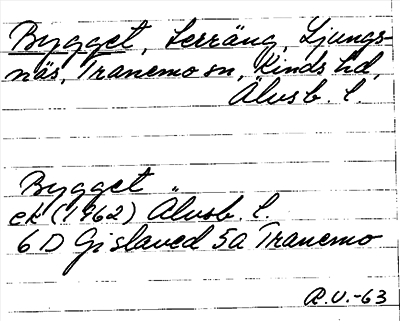 Bygget, Serräng, Ljungs-
näs, Tranemo sn, Kinds hd,
Älvsb. l.
Bygget "
ek (1962) Älvsb. l.
6 D Gislaved 5a Tranemo
R.U.-63